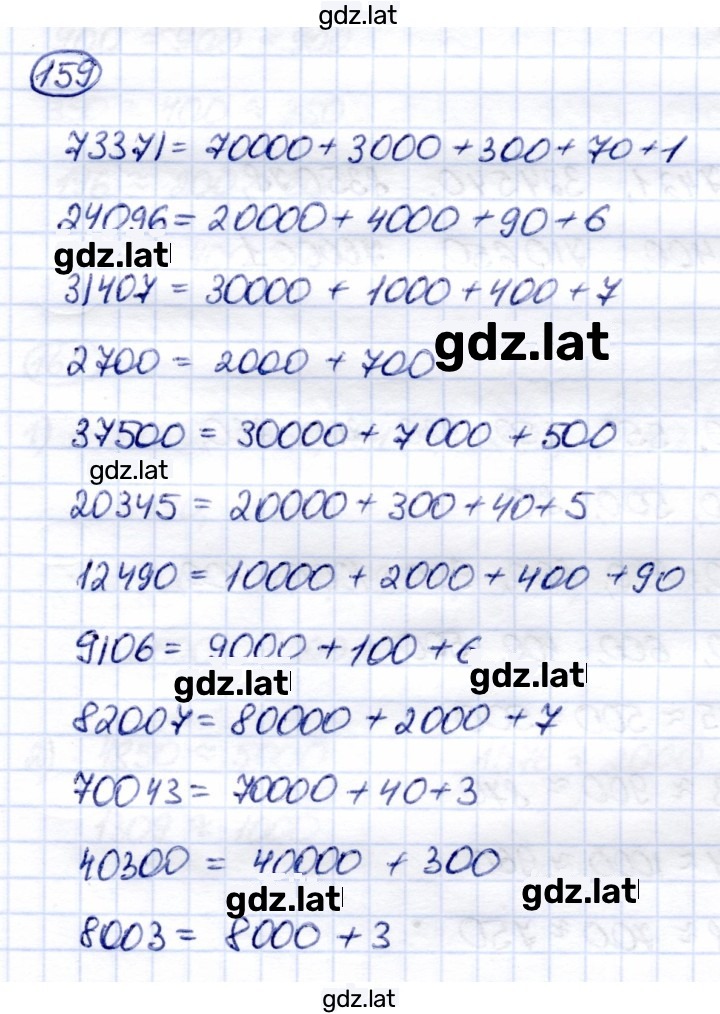 gdz.lat
159
73371 = 70000 + 3000 + 300 + 70 + 1
24096 = 20000 + 4000 + 90 + 6
gdz.lat
31407 = 30000 + 1000 + 400 + 7
gdz.lat
2700 = 2000 + 700
37500 = 30000 + 7000 + 500
gdz.lat
20345 = 20000 + 300 + 40 + 5
12490 = 10000 + 2000 + 400 + 90
9106 = 9000 + 100 + 6
gdz.lat gdz.lat
82007 = 80000 + 2000 + 7
70043 = 70000 + 40 + 3
40300 = 40000 + 300
gdz.lat gdz.lat
8003 = 8000 + 3
gdz.lat